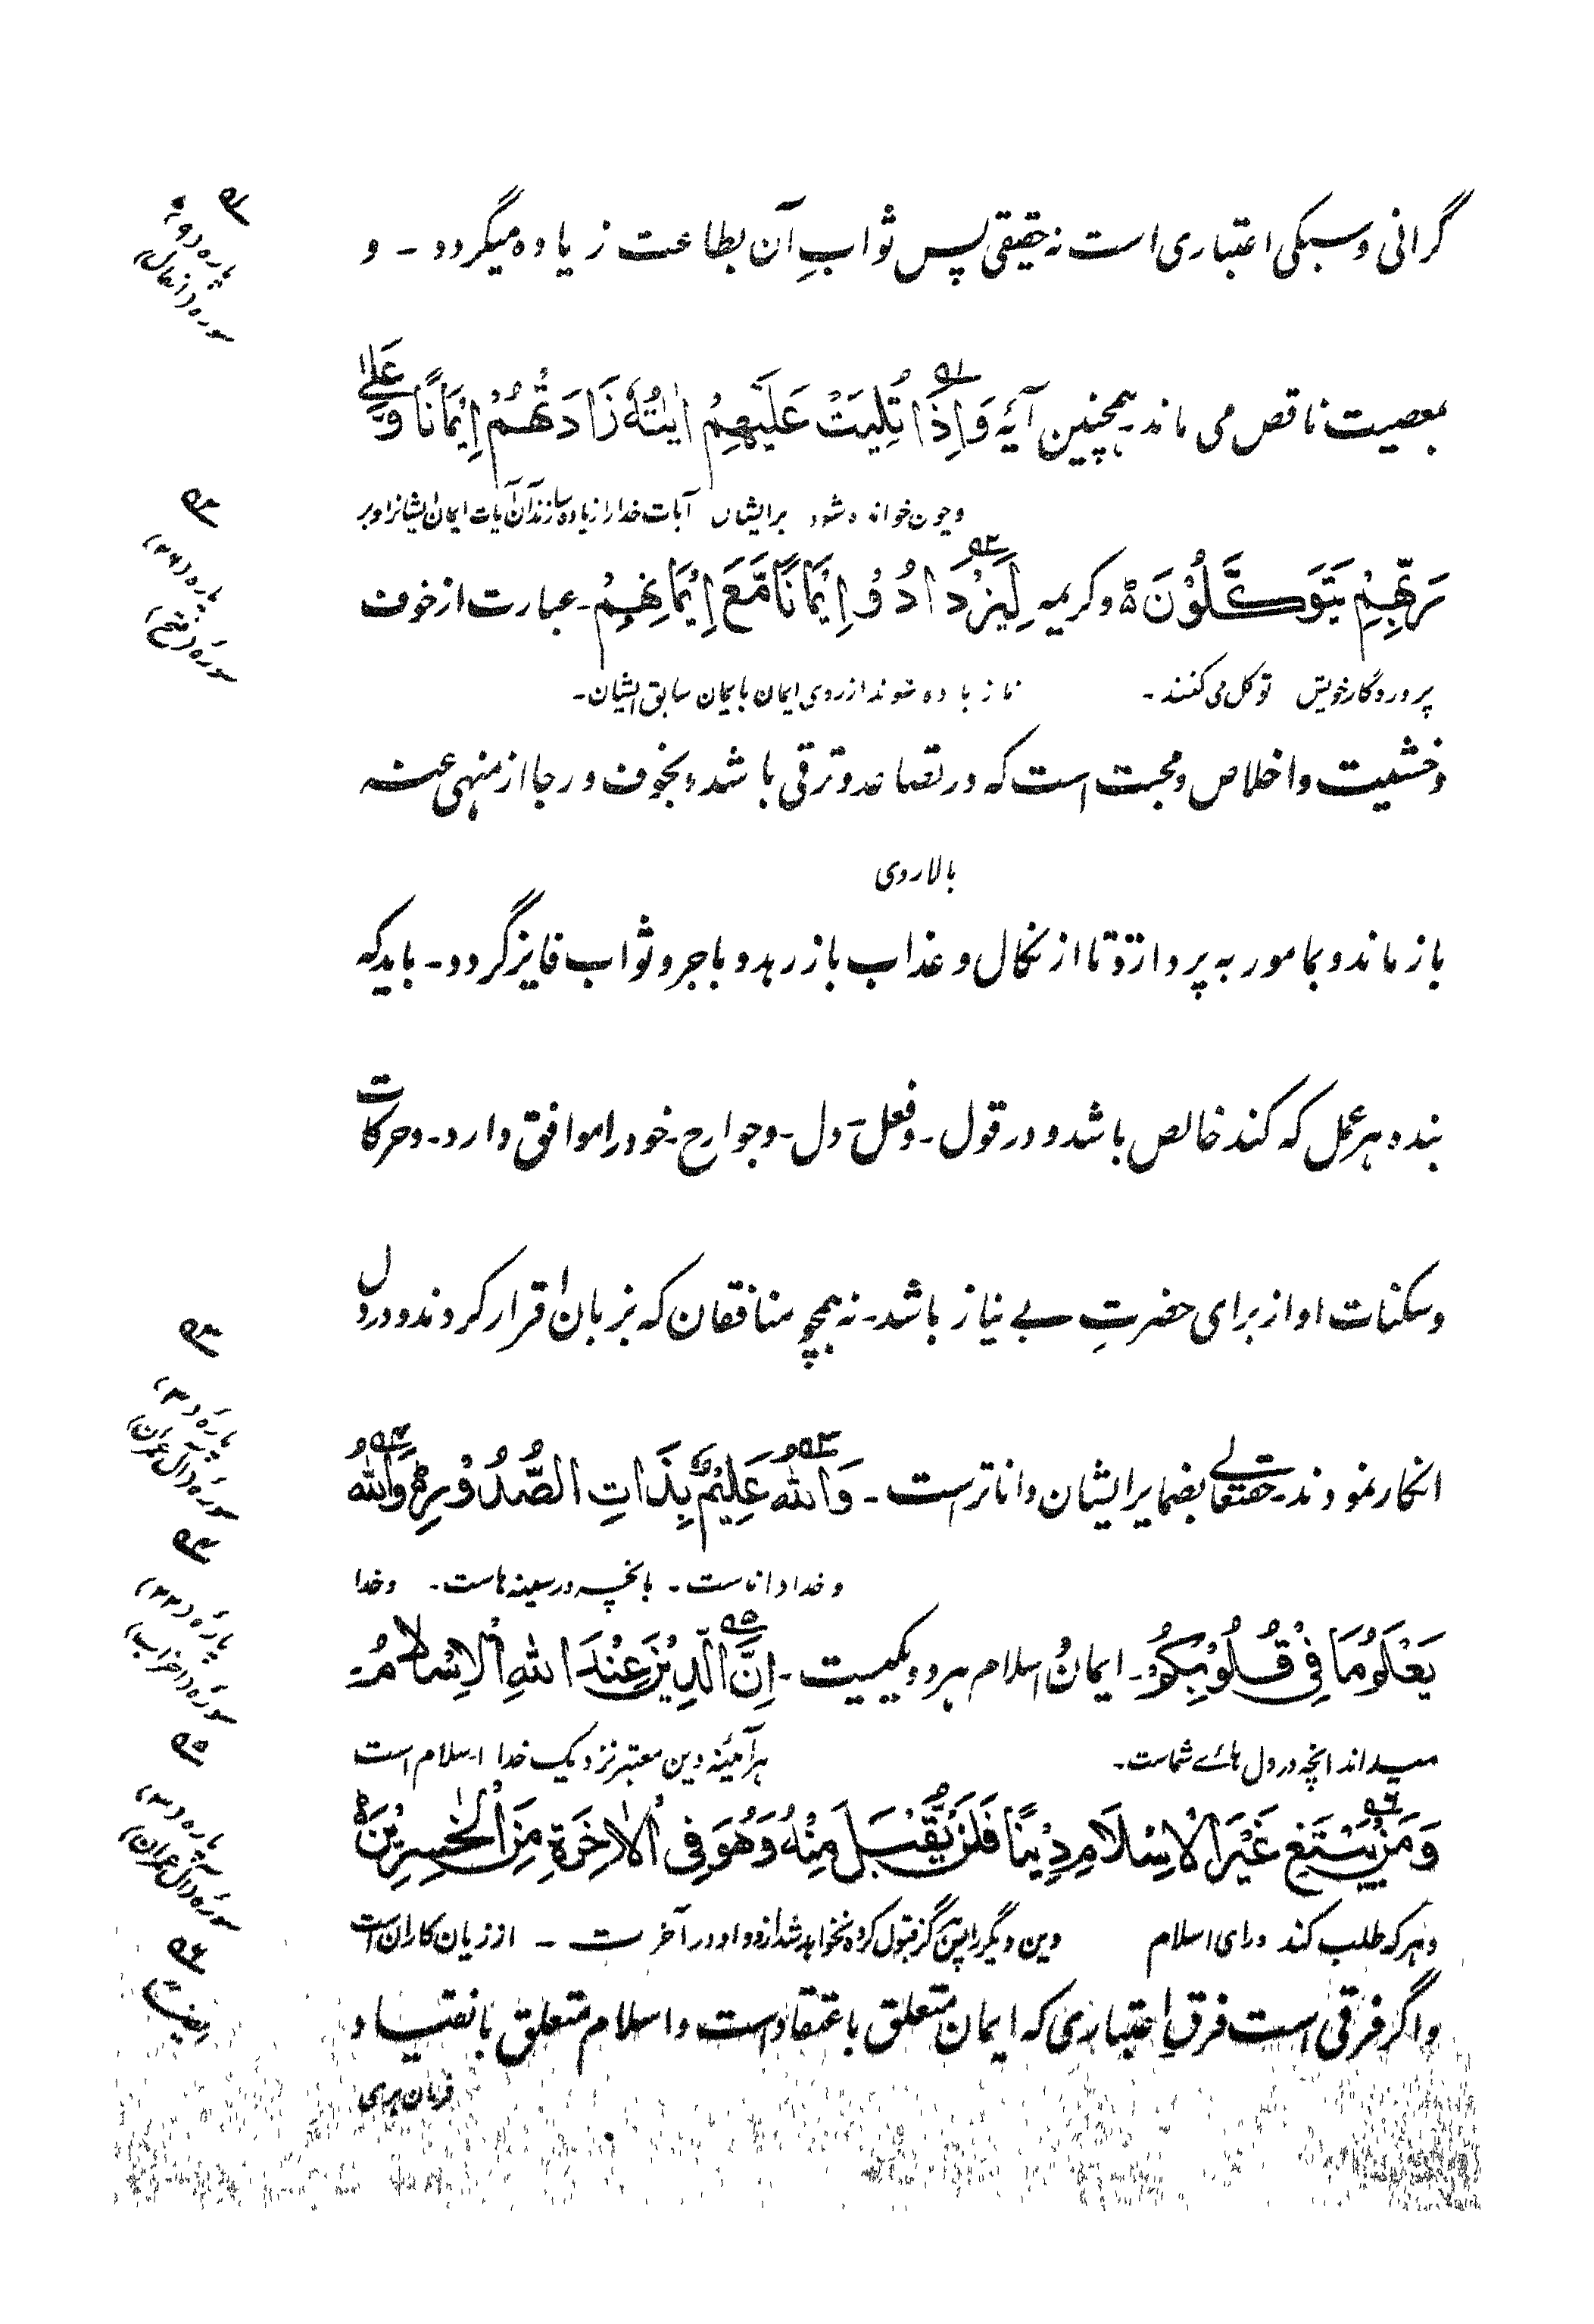 گرانی و سبکی اعتباری است نه حقیقی پس ثوابِ آن بطاعت زیاده میگردد - و
بمعصیت ناقص می ماند - همچنین آیهٔ وَاِذَا تُلِیَتْ عَلَیْهِمْ اٰیٰتُهٗ زَادَتْهُمْ اِیْمَانًا وَّعَلٰی
و چون خوانده شود برایشاں آیات خدا را زیاده سازند آن آیات ایمان ایشانرا و بر
رَبِّهِمْ یَتَوَکَّلُوْنَ ہ و کریمه لِیَزْدَادُوْا اِیْمَانًا مَّعَ اِیْمَانِهِمْ - عبارت از خوف
پروردگار خویش توکل می کنند - تا زیاده شوند از روی ایمان با ایمان سابق ایشان -
و خشیت و اخلاص و محبت است که در تصاعد و ترقی باشد و بخوف و رجا از منهی عنه
بالا روی
باز ماند و بمامور به پردازد تا از نکال و عذاب باز رهد و باجر و ثواب فایز گردد - باید که
بنده هر عمل که کند خالص باشد و در قول - و فعل - و دل - و جوارح - خود را موافق دارد - و حرکات
و سکنات او از برای حضرتِ بے نیاز باشد - نه همچو منافقان که بزبان اقرار کردند و در دل
انکار نمودند - حقتعالے بضمایر ایشان داناتر است - وَاللهُ عَلِیْمٌۢ بِذَاتِ الصُّدُوْرِ ہ وَاللهُ
و خدا داناست - بانچه در سینه هاست - و خدا
یَعْلَمُ مَا فِیْ قُلُوْبِکُمْ - ایمان و اسلام هر دو یکیست - اِنَّ الدِّیْنَ عِنْدَ اللهِ الْاِسْلَامُ -
میداند انچه در دل هائے شماست - هر آئینه دین معتبر نزدیک خدا اسلام است
وَمَنْ یَّبْتَغِ غَیْرَ الْاِسْلَامِ دِیْنًا فَلَنْ یُّقْبَلَ مِنْهُ وَهُوَ فِی الْاٰخِرَةِ مِنَ الْخٰسِرِیْنَ ہ
و هر که طلب کند ورای اسلام دین دیگر را پس هرگز قبول کرده نخواهد شد ازو و او در آخرت - از زیان کاران است
و اگر فرقی است فرقِ اعتباری که ایمان متعلق باعتقاد است و اسلام متعلق بانقیاد
فرمان بری
۹۱
پاره (۹)
سوره (انفال)
۹۲
پاره (۲۶)
سورهٔ (فتح)
۹۳
پارهٔ (۳)
سورهٔ (آل عمران)
۹۴
پارهٔ (۲۲)
سورهٔ (احزاب)
۹۵
پاره (۳)
سورهٔ (آل عمران)
۹۶
ایضاً